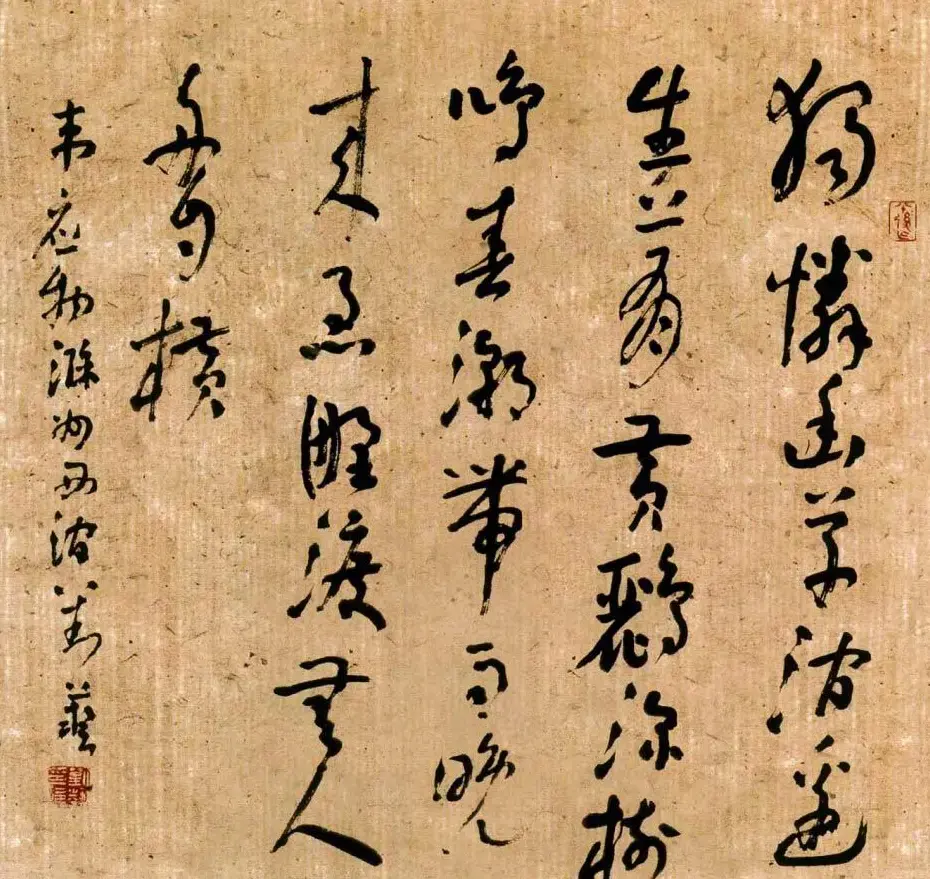 獨憐幽草澗邊
生上有黃鸝深樹
鳴春潮帶雨晚
來急野渡無人
舟自橫
韋應物滁州西澗 劉藝